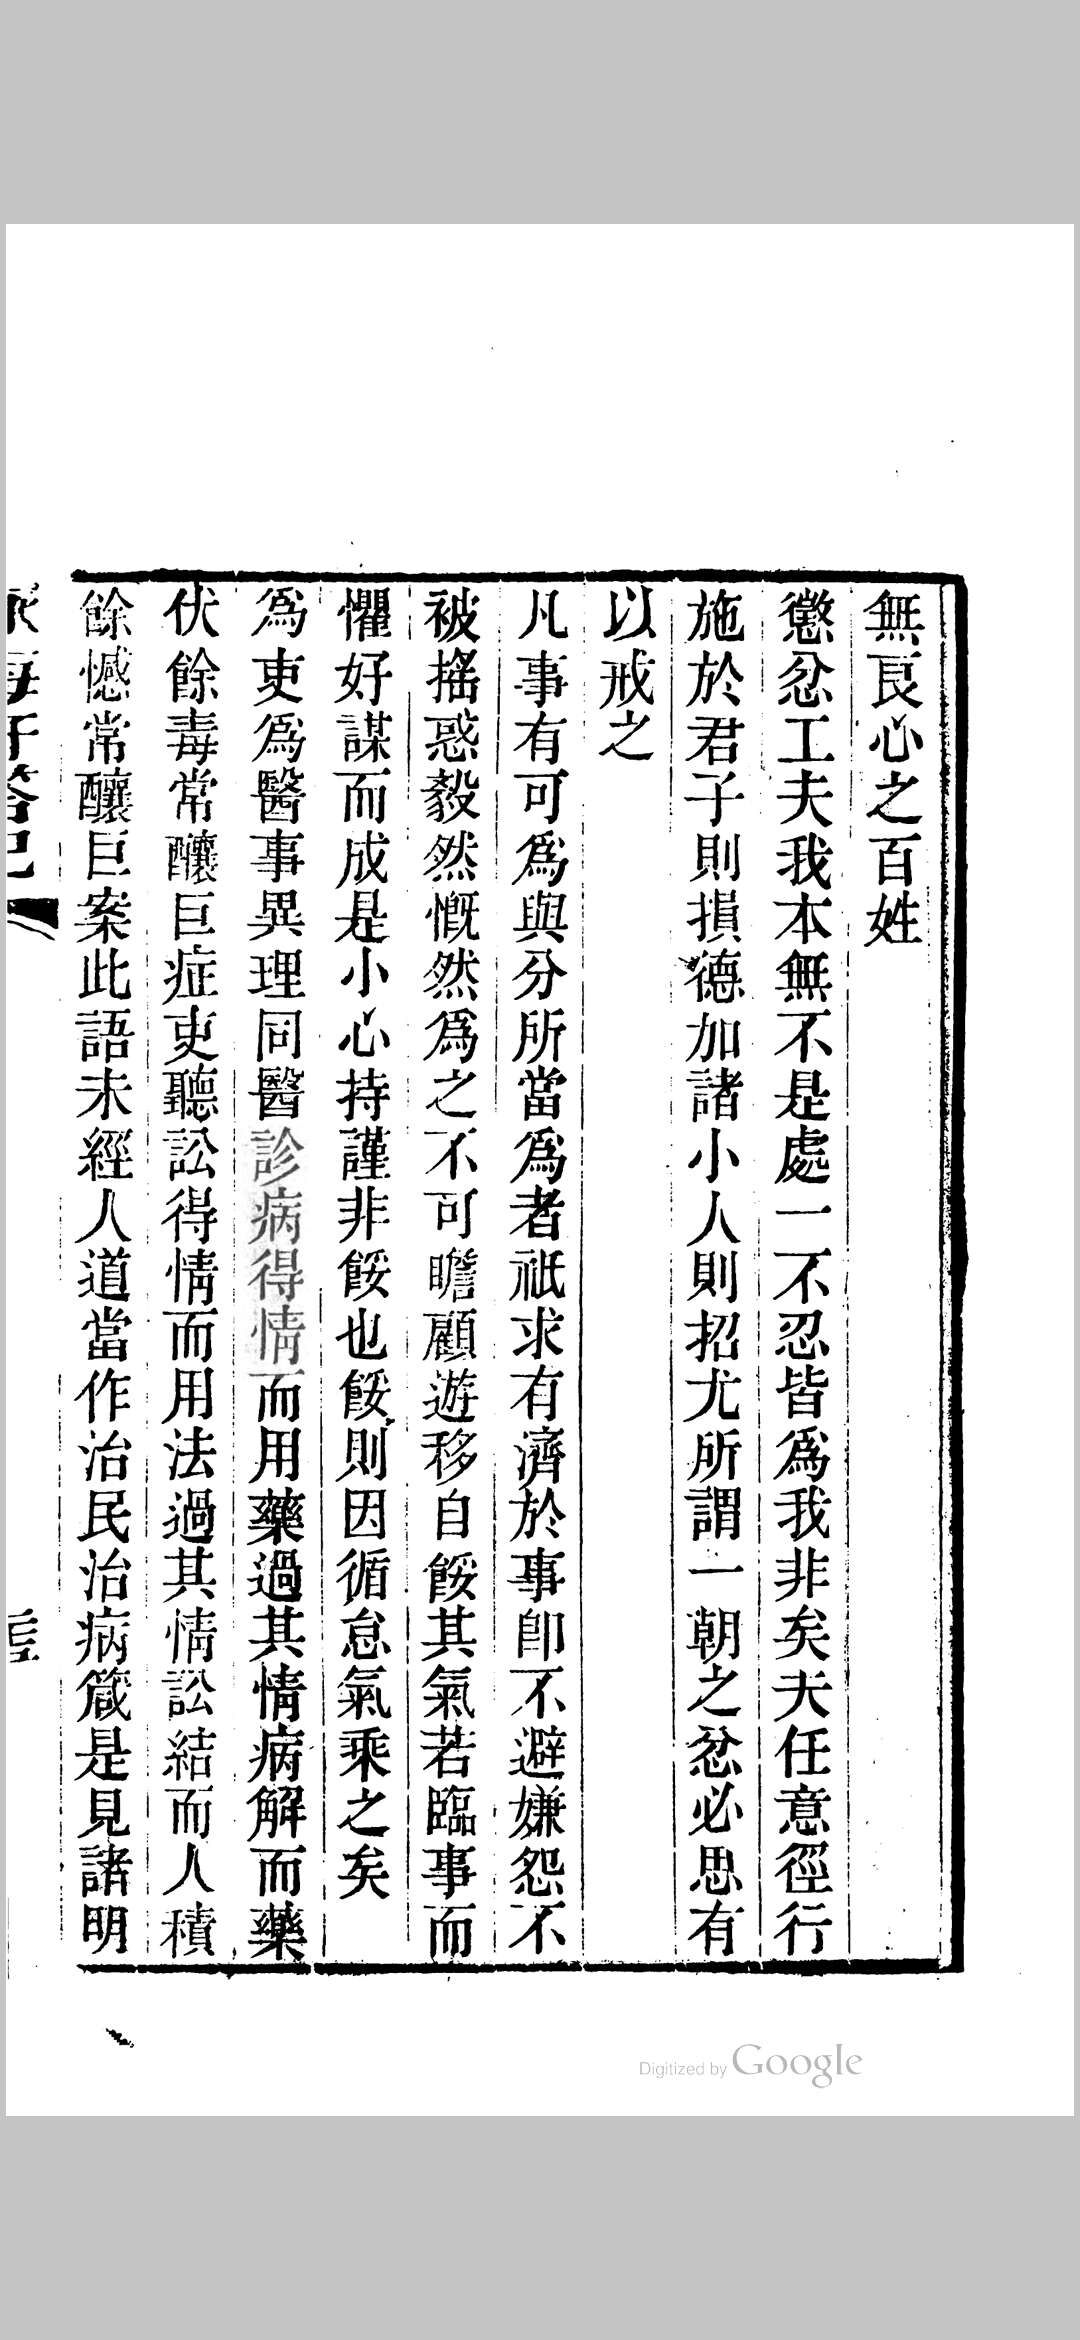 無良心之百姓
懲忿工夫我本無不是處一不忍皆爲我非矣夫任意徑行
施於君子則損德加諸小人則招尤所謂一朝之忿必思有
以戒之
凡事有可爲與分所當爲者祇求有濟於事卽不避嫌怨不
被搖惑毅然慨然爲之不可瞻顧遊移自餒其氣若臨事而
懼好謀而成是小心持謹非餒也餒則因循怠氣乘之矣
爲吏爲醫事異理同醫診病得情而用藥過其情病解而藥
伏餘毒常釀巨症吏聽訟得情而用法過其情訟結而人積
餘憾常釀巨案此語未經人道當作治民治病箴是見諸明
Digitized by Google